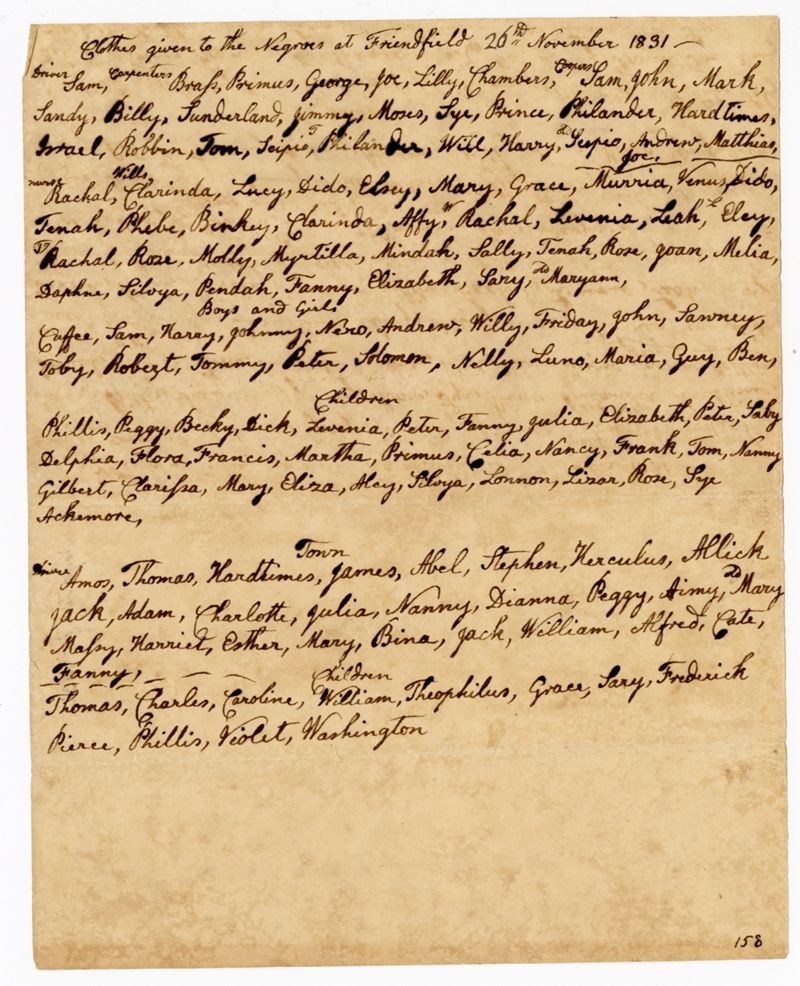 Clothes given to the Negroes at Friendfield 26th November 1831 —
Driver Sam, Carpenters Brass, Primus, George, Joe, Lilly, Chambers, Coopers Sam, John, Mark,
Sandy, Billy, Sunderland, Jimmy, Moses, Sye, Prince, Philander, Hardtimes,
Israel, Robbin, Tom, Scipio, T Philander, Will, Harry, Scipio, Andrew, Matthias,
Joe,
nurse Rachal, Wills Clarinda, Lucy, Dido, Elsey, Mary, Grace, Murria, Venus, Dido,
Tenah, Phebe, Binkey, Clarinda, Affy, Rachal, Levenia, Leah, Elcy,
Rachal, Rose, Molly, Myrtilla, Mindah, Sally, Tenah, Rose, Joan, Melia,
Daphne, Silvya, Pendah, Fanny, Elizabeth, Sary, Maryann,
Boys and Girls
Cuffee, Sam, Harry, Johnny, Nero, Andrew, Willy, Friday, John, Sawney,
Toby, Robert, Tommy, Peter, Solomon, Nelly, Luno, Maria, Guy, Ben,
Children
Phillis, Peggy, Becky, Dick, Levenia, Peter, Fanny, Julia, Elizabeth, Peter, Saby
Delphia, Flora, Francis, Martha, Primus, Celia, Nancy, Frank, Tom, Nanny
Gilbert, Clarissa, Mary, Eliza, Alcy, Silvya, Lonnon, Lizar, Rose, Sye
Ackemore,
Town
Driver Amos, Thomas, Hardtimes, James, Abel, Stephen, Herculus, Allick
Jack, Adam, Charlotte, Julia, Nanny, Dianna, Peggy, Aimy, Mary
Massy, Harriet, Esther, Mary, Bina, Jack, William, Alfred, Cate,
Fanny,
Children
Thomas, Charles, Caroline, William, Theophilus, Grace, Sary, Frederick
Pierce, Phillis, Violet, Washington
158